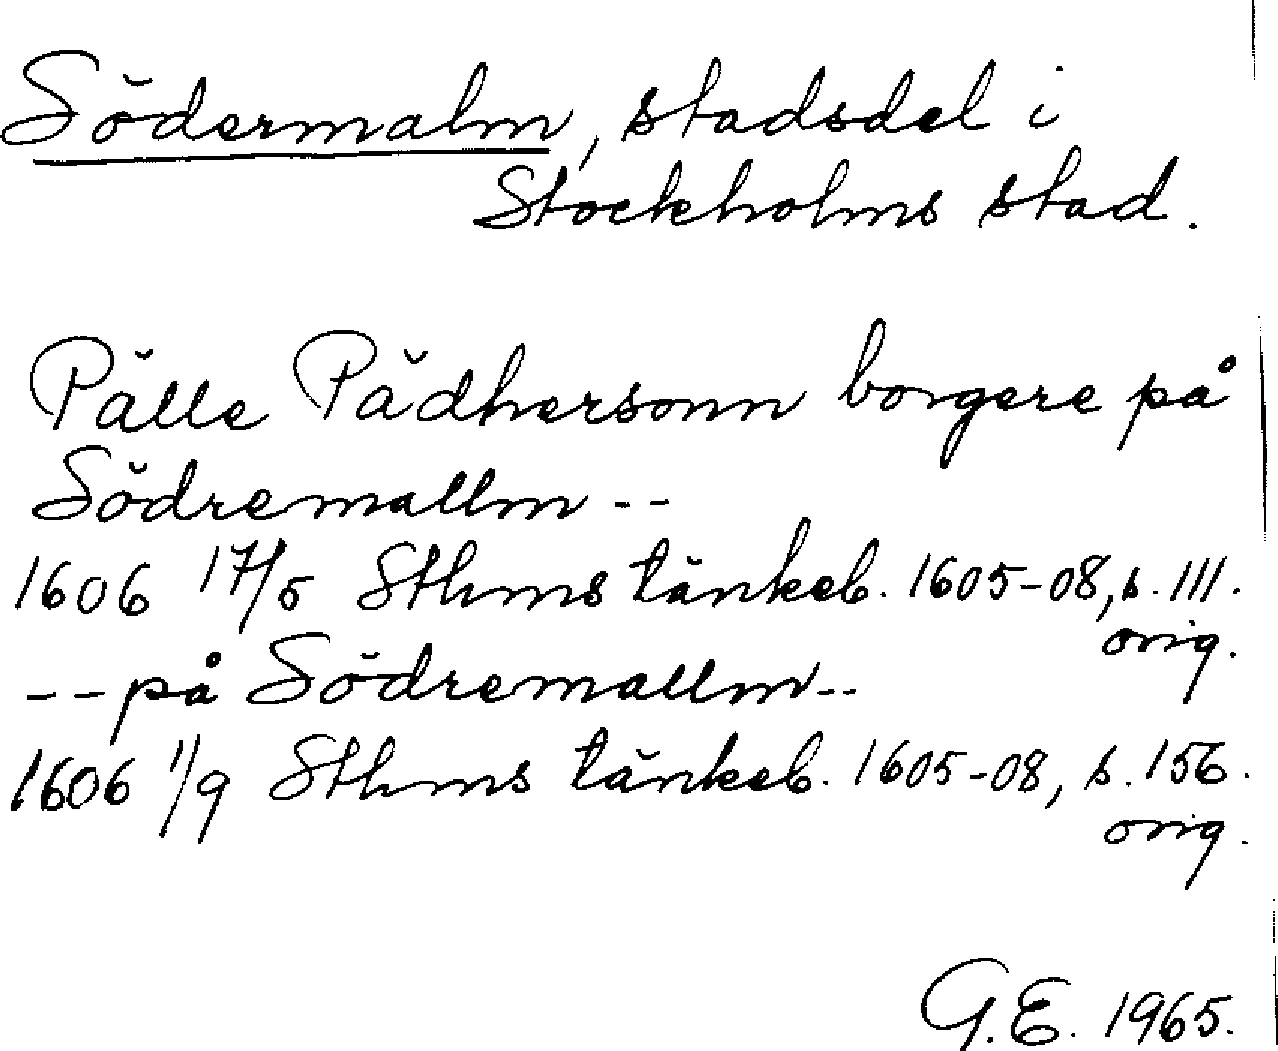 Södermalm, stadsdel i
Stockholms stad.
Pälle Pädhersonn borgere på
Södremallm --
1606 17/5 Sthms tänkeb. 1605-08, s. 111.
orig.
-- på Södremallm --
1606 11/9 Sthms tänkeb. 1605-08, s. 156.
orig.
G.E. 1965.